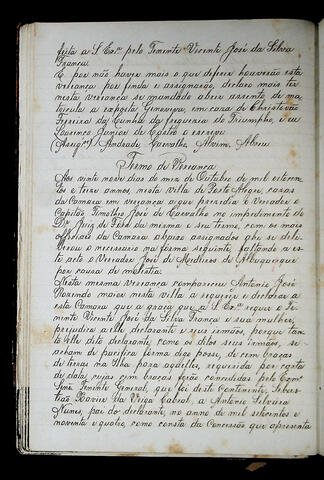 feita a S. Exª. pelo Tenente Vicente José da Silva
França.
E por não haver mais o que deferir houverão esta
vereança por finda e assignarão, declaro mais ter
nesta vereança se mandado abrir assento de ma-
tricula a exposta Genoveva, em casa de Christovão
Ferreira da Cunha da freguezia do Triumpho, e eu
Lourenço Junior de Castro a escrevi
Assigºs / Andrade, Carvalho, Alvim, Abreu
Termo de Vereança
Aos vinte nove dias do mez de Outubro de mil oitocen-
tos e treze annos, nesta villa de Porto Alegre, casas
da Camara em vereança a que presedio o Vereador o
Capitão Timotheo José de Carvalho no impedimento do
Dr. Juiz de Fora da mesma e seu termo, com os mais
officiaes da Camara abaixo assignados ahi se deli-
berou o necessario na forma seguinte, faltando a es-
te acto o Vereador José de Medeiros de Albuquerque
por causa de molestia.
Nesta mesma vereança compareceu Antonio José
morador nesta villa a requerer e declarar a
esta Camara que a graça que a S. Exª. requer o Te-
nente Vicente José da Silva França e sua mulher,
prejudica a elle declarante e seus irmãos, porque tan-
to elle dito declarante, como os ditos seus irmãos, se
acham de pacifica forma digo posse, de cem braças
de terras na Ilha para aquelles, requerida por carta
de data, cujas cem braças forão concedidas pelo Exmº.
Snr. Tenente General, que foi deste Continente, Sebas-
tião Xavier da Veiga Cabral, a Antonio Silveira
Nunes, pai do declarante, no anno de mil setecentos e
noventa e quatro, como consta da Concessão que apresenta